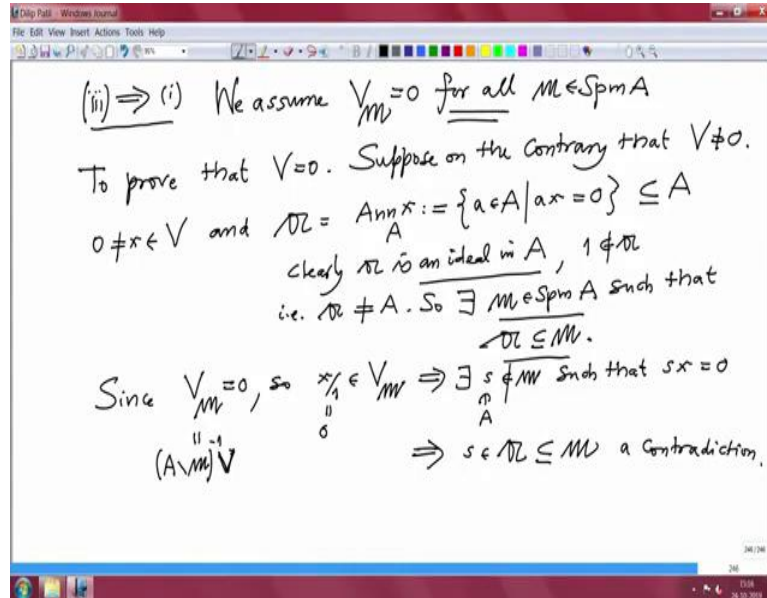 Dilip Patil - Windows Journal
File Edit View Insert Actions Tools Help
(iii) ⇒ (i) We assume V_𝔪 = 0 for all 𝔪 ∈ Spm A
To prove that V = 0. Suppose on the contrary that V ≠ 0.
0 ≠ x ∈ V and 𝔞 = Ann_A x := {a ∈ A | ax = 0} ⊆ A
clearly 𝔞 is an ideal in A, 1 ∉ 𝔞
i.e. 𝔞 ≠ A. So ∃ 𝔪 ∈ Spm A such that
𝔞 ⊆ 𝔪.
Since V_𝔪 = 0, so x/1 ∈ V_𝔪 ⇒ ∃ s ∉ 𝔪 such that sx = 0
|| || ∩
(A∖𝔪)⁻¹V 0 A
⇒ s ∈ 𝔞 ⊆ 𝔪 a contradiction.
246/246
246
15:56